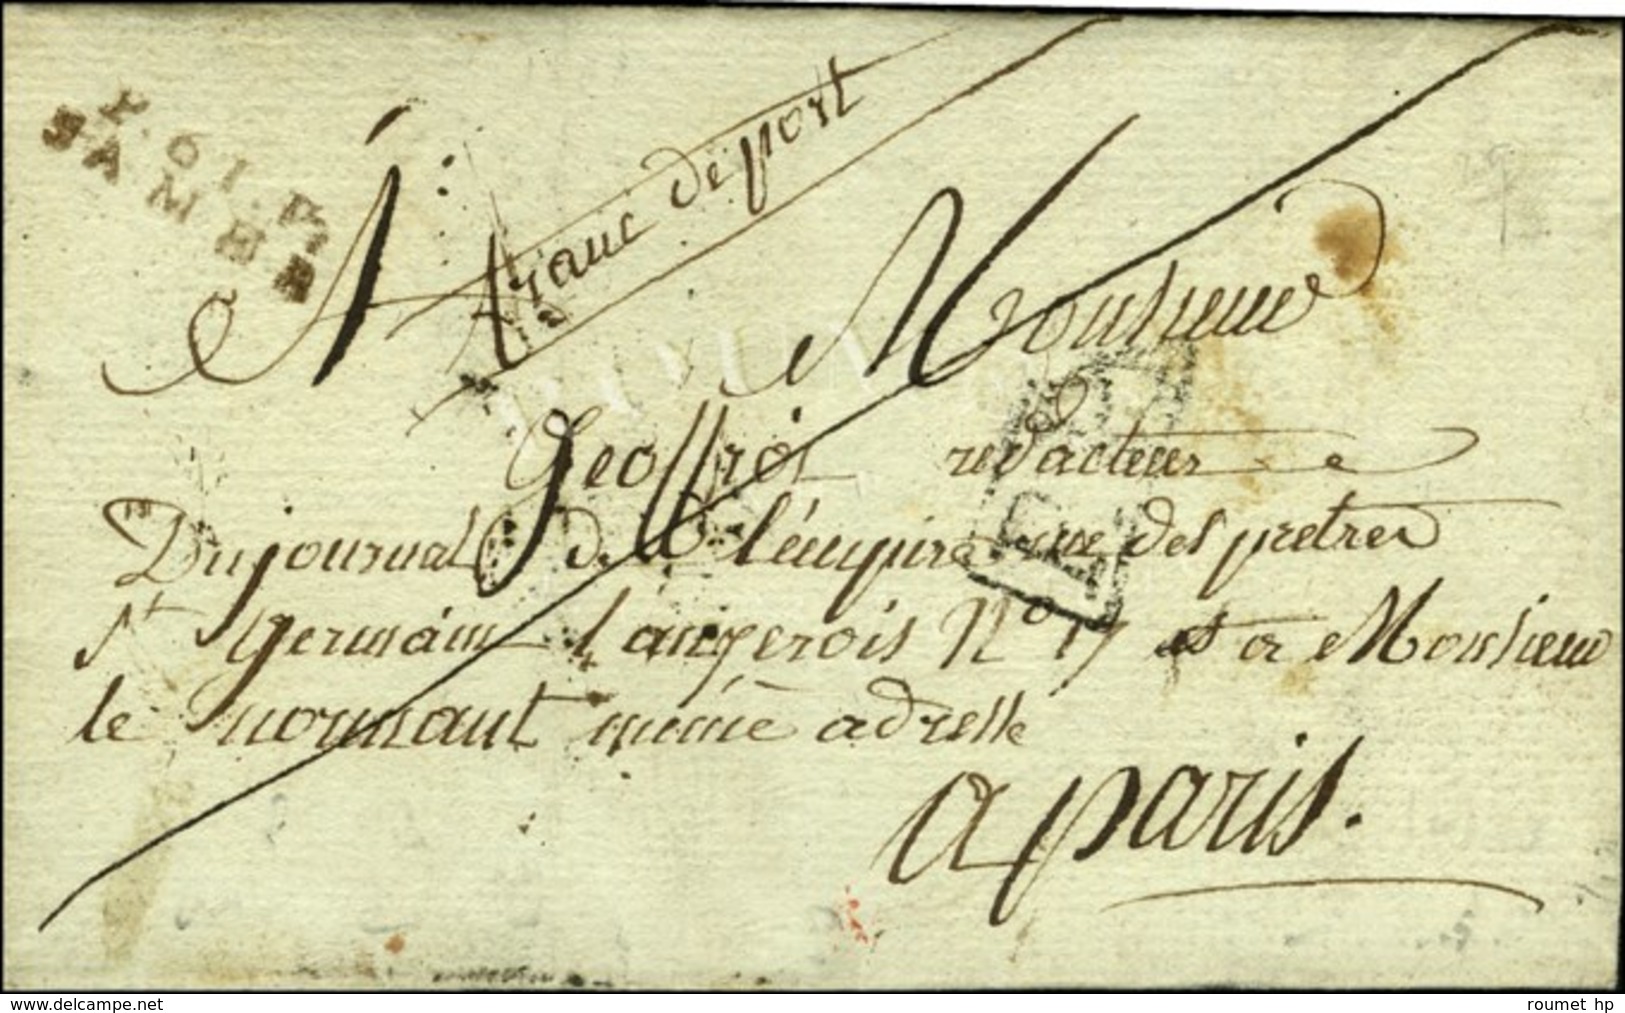 P.61.P.
SAMER
franc de port
A Monsieur
Geoffroi redacteur
Du journal De l'empire rue des pretres
St Germain L'auxerois No 17 et a Monsieur
le normant même adresse
a paris.
P.P.
delcampe.net
roumet hp